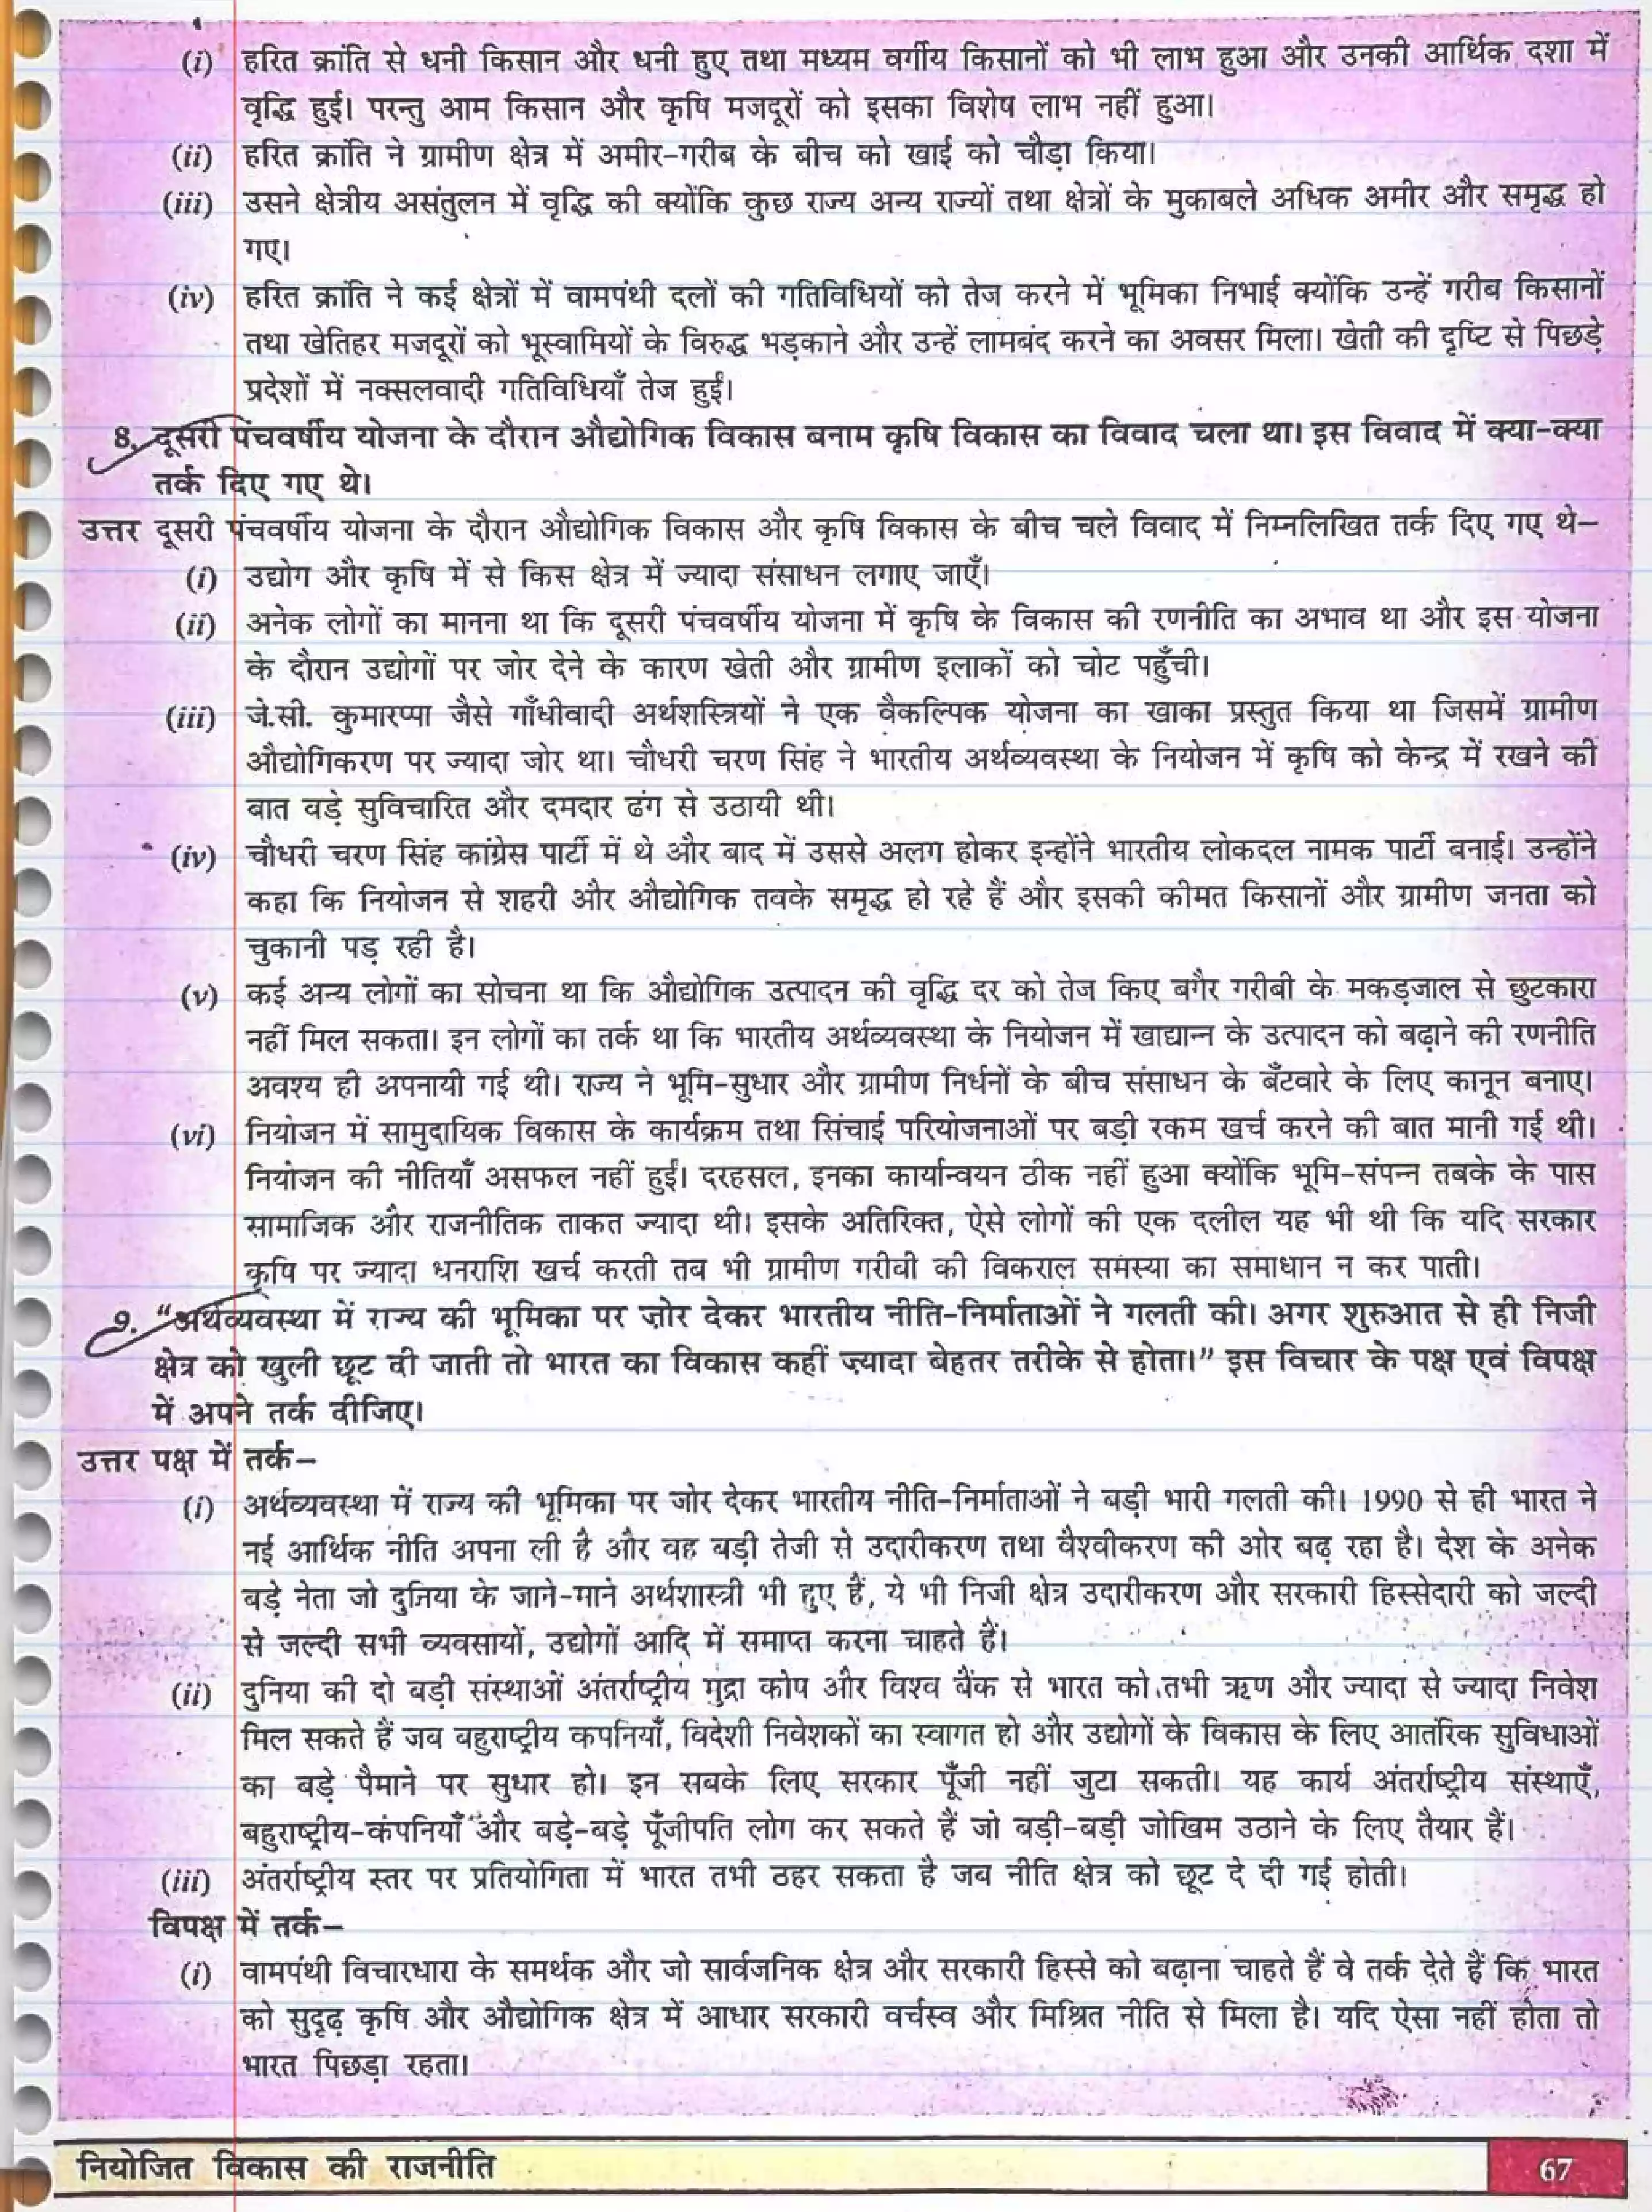 (i) हरित क्रांति से धनी किसान और धनी हुए तथा मध्यम वर्गीय किसानों को भी लाभ हुआ और उनकी आर्थिक दशा में
वृद्धि हुई। परन्तु आम किसान और कृषि मजदूरों को इसका विशेष लाभ नहीं हुआ।
(ii) हरित क्रांति ने ग्रामीण क्षेत्र में अमीर-गरीब के बीच को खाई को चौड़ा किया।
(iii) उसने क्षेत्रीय असंतुलन में वृद्धि की क्योंकि कुछ राज्य अन्य राज्यों तथा क्षेत्रों के मुकाबले अधिक अमीर और समृद्ध हो
गए।
(iv) हरित क्रांति ने कई क्षेत्रों में वामपंथी दलों की गतिविधियों को तेज करने में भूमिका निभाई क्योंकि उन्हें गरीब किसानों
तथा खेतिहर मजदूरों को भूस्वामियों के विरुद्ध भड़काने और उन्हें लामबंद करने का अवसर मिला। खेती की दृष्टि से पिछड़े
प्रदेशों में नक्सलवादी गतिविधियाँ तेज हुईं।
8. दूसरी पंचवर्षीय योजना के दौरान औद्योगिक विकास बनाम कृषि विकास का विवाद चला था। इस विवाद में क्या-क्या
तर्क दिए गए थे।
उत्तर दूसरी पंचवर्षीय योजना के दौरान औद्योगिक विकास और कृषि विकास के बीच चले विवाद में निम्नलिखित तर्क दिए गए थे–
(i) उद्योग और कृषि में से किस क्षेत्र में ज्यादा संसाधन लगाए जाएँ।
(ii) अनेक लोगों का मानना था कि दूसरी पंचवर्षीय योजना में कृषि के विकास की रणनीति का अभाव था और इस योजना
के दौरान उद्योगों पर जोर देने के कारण खेती और ग्रामीण इलाकों को चोट पहुँची।
(iii) जे.सी. कुमारप्पा जैसे गाँधीवादी अर्थशास्त्रियों ने एक वैकल्पिक योजना का खाका प्रस्तुत किया था जिसमें ग्रामीण
औद्योगिकरण पर ज्यादा जोर था। चौधरी चरण सिंह ने भारतीय अर्थव्यवस्था के नियोजन में कृषि को केन्द्र में रखने की
बात बड़े सुविचारित और दमदार ढंग से उठायी थी।
(iv) चौधरी चरण सिंह कांग्रेस पार्टी में थे और बाद में उससे अलग होकर इन्होंने भारतीय लोकदल नामक पार्टी बनाई। उन्होंने
कहा कि नियोजन से शहरी और औद्योगिक तवके समृद्ध हो रहे हैं और इसकी कीमत किसानों और ग्रामीण जनता को
चुकानी पड़ रही है।
(v) कई अन्य लोगों का सोचना था कि औद्योगिक उत्पादन की वृद्धि दर को तेज किए बगैर गरीबी के मकड़जाल से छुटकारा
नहीं मिल सकता। इन लोगों का तर्क था कि भारतीय अर्थव्यवस्था के नियोजन में खाद्यान्न के उत्पादन को बढ़ाने की रणनीति
अवश्य ही अपनायी गई थी। राज्य ने भूमि-सुधार और ग्रामीण निर्धनों के बीच संसाधन के बँटवारे के लिए कानून बनाए।
(vi) नियोजन में सामुदायिक विकास के कार्यक्रम तथा सिंचाई परियोजनाओं पर बड़ी रकम खर्च करने की बात मानी गई थी।
नियोजन की नीतियाँ असफल नहीं हुईं। दरहसल, इनका कार्यान्वयन ठीक नहीं हुआ क्योंकि भूमि-संपन्न तबके के पास
सामाजिक और राजनीतिक ताकत ज्यादा थी। इसके अतिरिक्त, ऐसे लोगों की एक दलील यह भी थी कि यदि सरकार
कृषि पर ज्यादा धनराशि खर्च करती तब भी ग्रामीण गरीबी की विकराल समस्या का समाधान न कर पाती।
9. “अर्थव्यवस्था में राज्य की भूमिका पर ज़ोर देकर भारतीय नीति-निर्माताओं ने गलती की। अगर शुरुआत से ही निजी
क्षेत्र को खुली छूट दी जाती तो भारत का विकास कहीं ज़्यादा बेहतर तरीके से होता।” इस विचार के पक्ष एवं विपक्ष
में अपने तर्क दीजिए।
उत्तर पक्ष में तर्क–
(i) अर्थव्यवस्था में राज्य की भूमिका पर जोर देकर भारतीय नीति-निर्माताओं ने बड़ी भारी गलती की। 1990 से ही भारत ने
नई आर्थिक नीति अपना ली है और वह बड़ी तेजी से उदारीकरण तथा वैश्वीकरण की ओर बढ़ रहा है। देश के अनेक
बड़े नेता जो दुनिया के जाने-माने अर्थशास्त्री भी हुए हैं, ये भी निजी क्षेत्र उदारीकरण और सरकारी हिस्सेदारी को जल्दी
से जल्दी सभी व्यवसायों, उद्योगों आदि में समाप्त करना चाहते हैं।
(ii) दुनिया की दो बड़ी संस्थाओं अंतर्राष्ट्रीय मुद्रा कोष और विश्व बैंक से भारत को तभी ऋण और ज्यादा से ज्यादा निवेश
मिल सकते हैं जब बहुराष्ट्रीय कपनियाँ, विदेशी निवेशकों का स्वागत हो और उद्योगों के विकास के लिए आतंरिक सुविधाओं
का बड़े पैमाने पर सुधार हो। इन सबके लिए सरकार पूँजी नहीं जुटा सकती। यह कार्य अंतर्राष्ट्रीय संस्थाएँ,
बहुराष्ट्रीय-कंपनियाँ और बड़े-बड़े पूँजीपति लोग कर सकते हैं जो बड़ी-बड़ी जोखिम उठाने के लिए तैयार हैं।
(iii) अंतर्राष्ट्रीय स्तर पर प्रतियोगिता में भारत तभी ठहर सकता है जब नीति क्षेत्र को छूट दे दी गई होती।
विपक्ष में तर्क–
(i) वामपंथी विचारधारा के समर्थक और जो सार्वजनिक क्षेत्र और सरकारी हिस्से को बढ़ाना चाहते हैं वे तर्क देते हैं कि भारत
को सुदृढ़ कृषि और औद्योगिक क्षेत्र में आधार सरकारी वर्चस्व और मिश्रित नीति से मिला है। यदि ऐसा नहीं होता तो
भारत पिछड़ा रहता।
नियोजित विकास की राजनीति
67